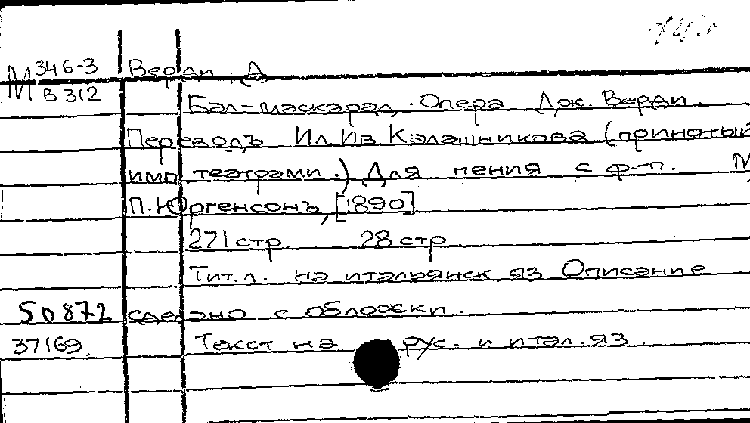 М 346-3 Верди, Д
В 312
Бал-маскарад. Опера Дж. Верди.
Переводъ Ил.Ив Калашникова (принятый
имп театрами.) Для пения с ф-п. М
П. Юргенсонъ, [1890]
271 стр 28 стр
Тит.л. на итальянск яз Описание
50872 сделано с обложки.
37169 Текст на рус. и итал.яз.